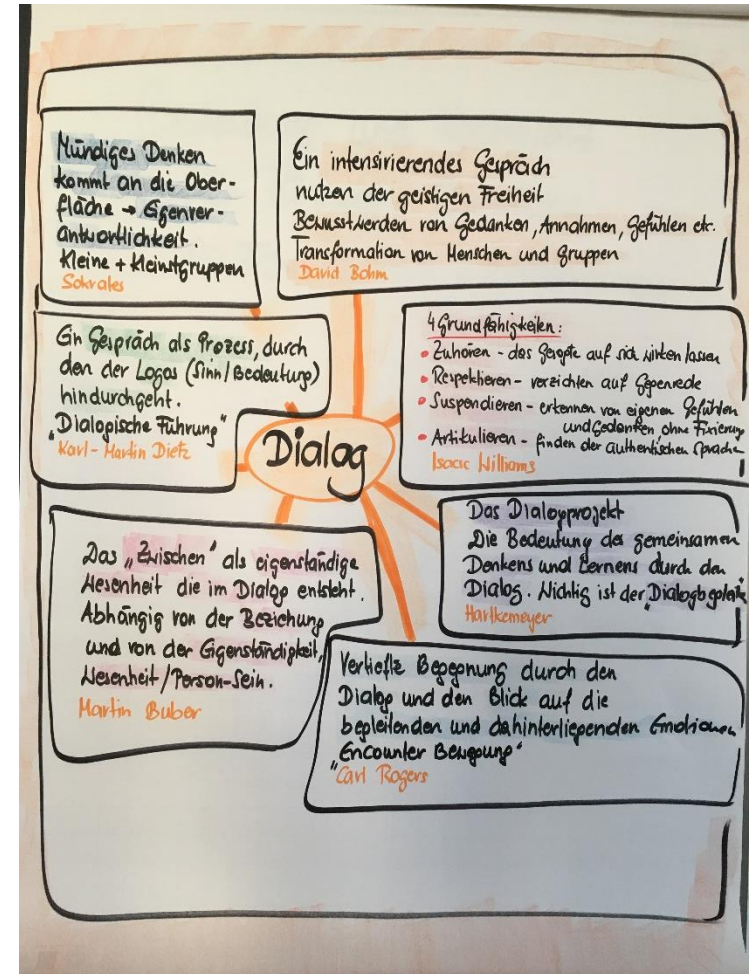 Mündiges Denken
kommt an die Ober-
fläche → Eigenver-
antwortlichkeit.
Kleine + Kleinstgruppen
Sokrates
Ein intensivierendes Gespräch
nutzen der geistigen Freiheit
Bewusstwerden von Gedanken, Annahmen, Gefühlen etc.
Transformation von Menschen und Gruppen
David Bohm
Ein Gespräch als Prozess, durch
den der Logos (Sinn/Bedeutung)
hindurchgeht.
„Dialogische Führung"
Karl-Martin Dietz
4 Grundfähigkeiten:
• Zuhören - das Gesagte auf sich wirken lassen
• Respektieren - verzichten auf Gegenrede
• Suspendieren - erkennen von eigenen Gefühlen
und Gedanken ohne Fixierung
• Artikulieren - finden der authentischen Sprache
Isaac Williams
Dialog
Das Dialogprojekt
Die Bedeutung des gemeinsamen
Denkens und Lernens durch den
Dialog. Wichtig ist der „Dialogbegleiter"
Hartkemeyer
Das „Zwischen" als eigenständige
Wesenheit die im Dialog entsteht.
Abhängig von der Beziehung
und von der Eigenständigkeit,
Wesenheit/Person-Sein.
Martin Buber
Vertiefte Begegnung durch den
Dialog und den Blick auf die
begleitenden und dahinterliegenden Emotionen
„Encounter Bewegung"
Carl Rogers